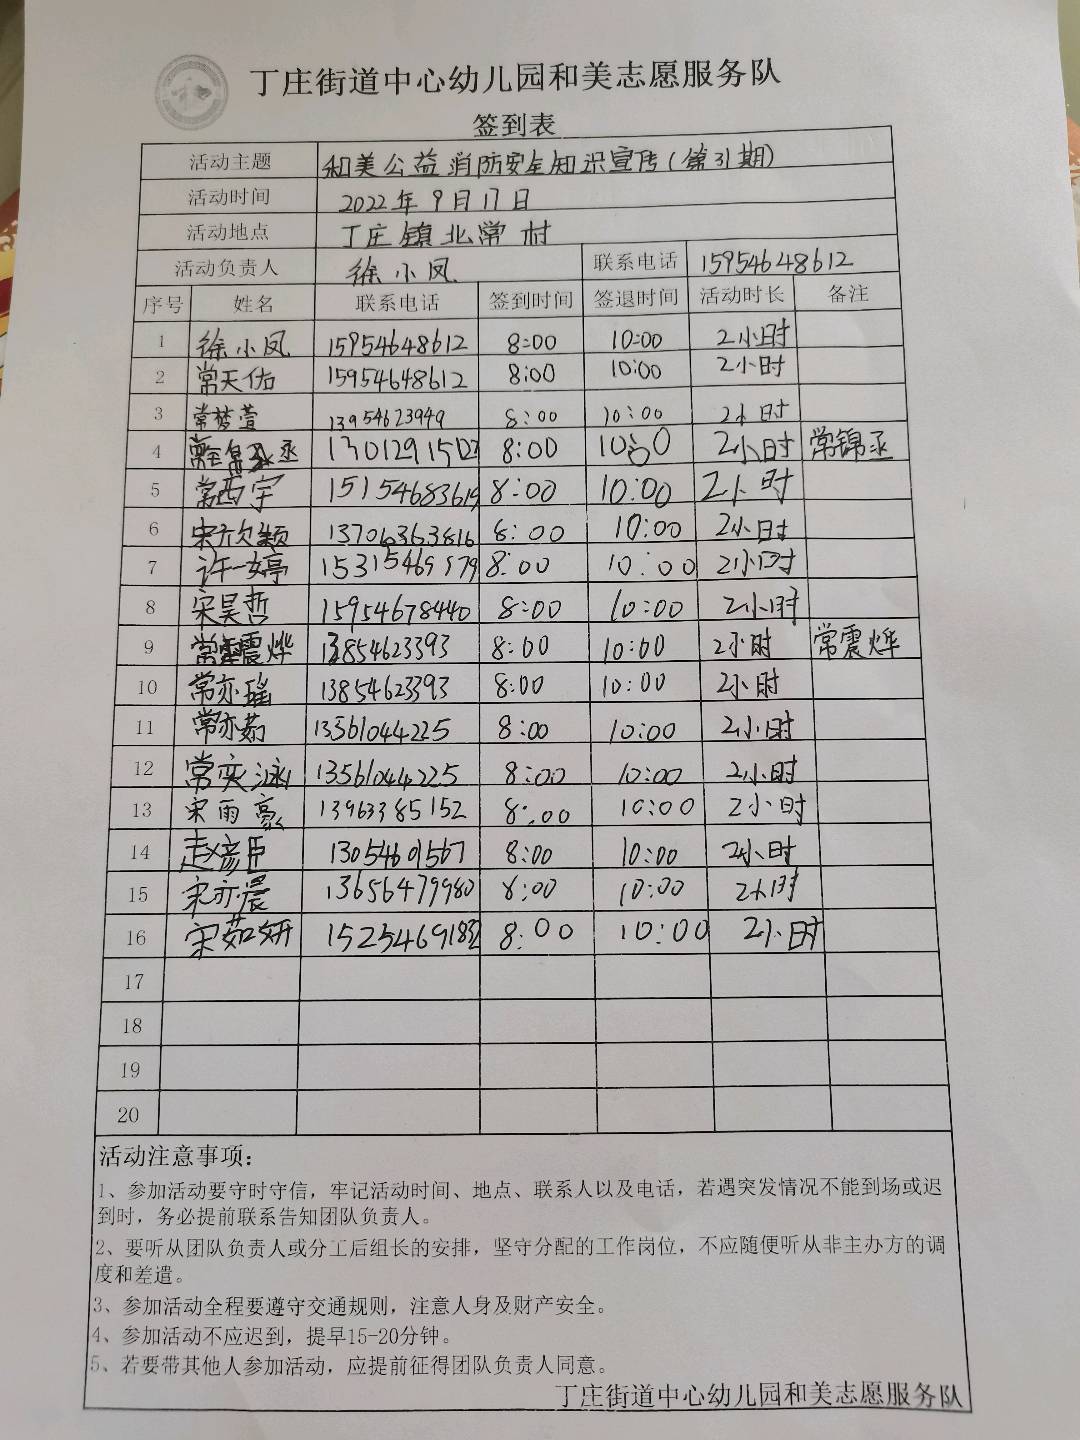 丁庄街道中心幼儿园和美志愿服务队
签到表
活动主题 和美公益消防安全知识宣传(第31期)
活动时间 2022年9月17日
活动地点 丁庄镇北常村
活动负责人 徐小凤 联系电话 15954648612
序号 姓名 联系电话 签到时间 签退时间 活动时长 备注
1 徐小凤 15954648612 8:00 10:00 2小时
2 常天佑 15954648612 8:00 10:00 2小时
3 常梦萱 13954623949 8:00 10:00 2小时
4 8:00 10:00 2小时 常锦丞
5 常西宇 8:00 10:00 2小时
6 宋欣颖 13706363816 8:00 10:00 2小时
7 许一婷 15315469579 8:00 10:00 2小时
8 宋昊哲 15954678440 8:00 10:00 2小时
9 常震烨 13854623393 8:00 10:00 2小时 常震烨
10 常亦瑶 13854623393 8:00 10:00 2小时
11 常亦茹 13561044225 8:00 10:00 2小时
12 常奕泳 13561044225 8:00 10:00 2小时
13 宋雨豪 13963385152 8:00 10:00 2小时
14 赵彦臣 13054601567 8:00 10:00 2小时
15 宋亦晨 13656479980 8:00 10:00 2小时
16 宋茹妍 8:00 10:00 2小时
17
18
19
20
活动注意事项:
1、参加活动要守时守信,牢记活动时间、地点、联系人以及电话,若遇突发情况不能到场或迟
到时,务必提前联系告知团队负责人。
2、要听从团队负责人或分工后组长的安排,坚守分配的工作岗位,不应随便听从非主办方的调
度和差遣。
3、参加活动全程要遵守交通规则,注意人身及财产安全。
4、参加活动不应迟到,提早15-20分钟。
5、若要带其他人参加活动,应提前征得团队负责人同意。
丁庄街道中心幼儿园和美志愿服务队